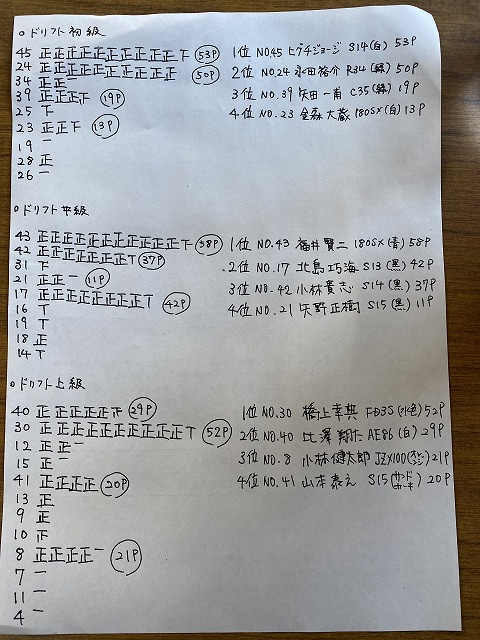 ○ドリフト初級
45 正正正正正正正正正正下 53P 1位 NO45 ヒグチジョージ S14(白) 53P
24 正正正正正正正正正正 50P 2位 NO.24 永田裕介 R34(緑) 50P
34 正正
39 正正正下 19P 3位 NO.39 矢田一甫 C35(緑) 19P
25 下 4位 NO.23 金森大蔵 180SX(白) 13P
23 正正下 13P
19 一
28 正
26 一
○ドリフト中級
43 正正正正正正正正正正正下 58P 1位 NO.43 福井賢二 180SX(青) 58P
42 正正正正正正正T 37P
31 下 2位 NO.17 北島巧海 S13(黒) 42P
21 正正一 11P 3位 NO.42 小林貴志 S14(黒) 37P
17 正正正正正正正正T 42P 4位 NO.21 矢野正樹 S15(黒) 11P
16 T
19 T
18 正
14 T
○ドリフト上級
40 正正正正正 29P 1位 NO.30 橋上幸典 FD3S 52P
30 正正正正正正正正正正T 52P 2位 NO.40 比澤翔仁 AE86(白) 29P
12 正正一 3位 NO.8 小林健太郎 JZX100 21P
15 正一
41 正正正正 20P 4位 NO.41 山本泰之 S15 20P
13 正
9 正
10 正
8 正正正正一 21P
7 一
11 一
4 一